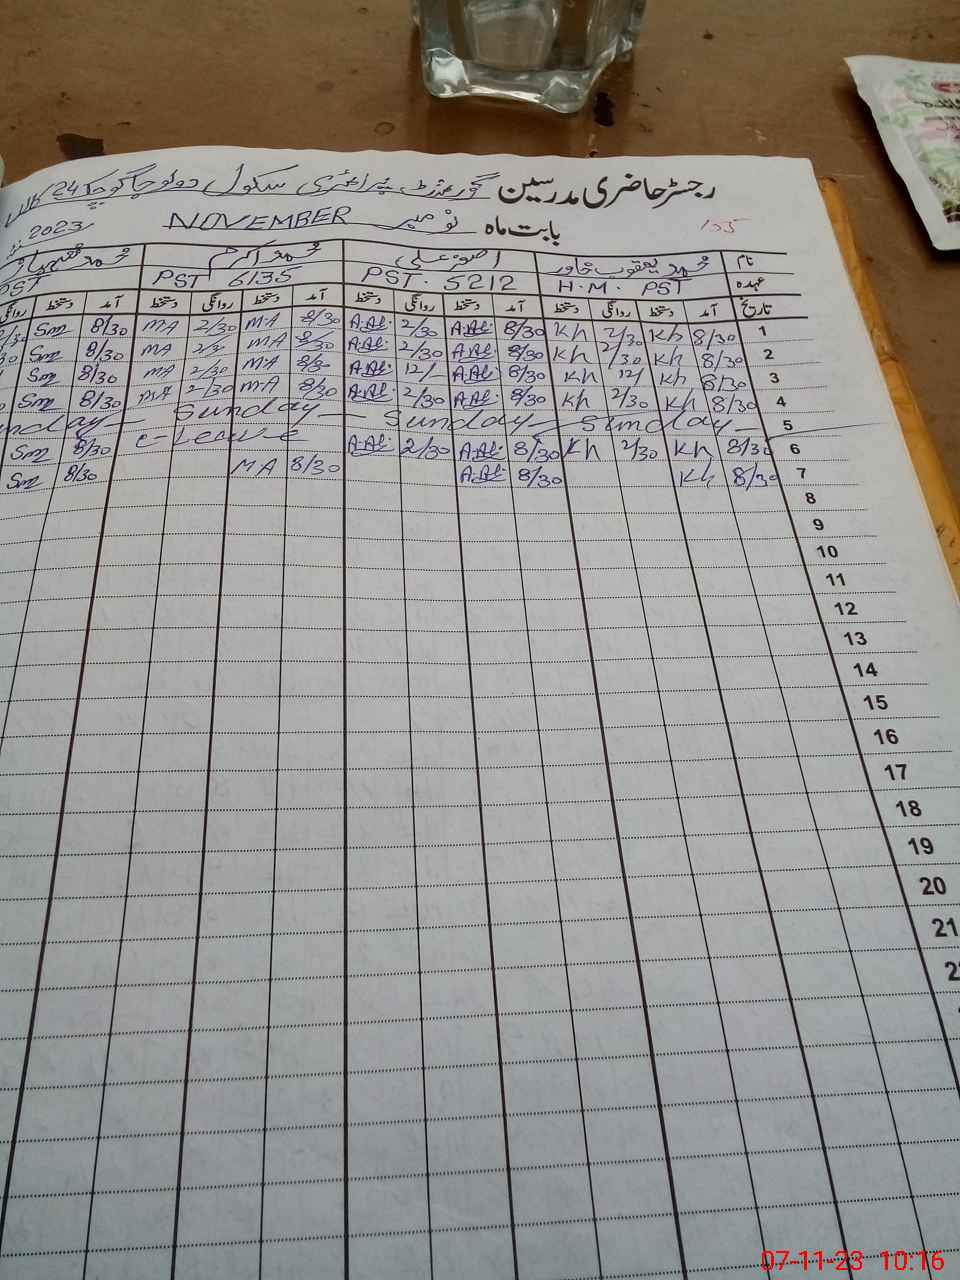 رجسٹر حاضری مدرسین گورنمنٹ پرائمری سکول
بابت ماہ نومبر NOVEMBER 2023
155
نام محمد یعقوب خاور اصغر علی محمد اکرم محمد
عہدہ H.M. PST PST. 5212 PST 6135 PST
تاریخ آمد دستخط روانگی دستخط آمد دستخط روانگی دستخط آمد دستخط روانگی دستخط آمد دستخط روانگی
1 8/30 Kh 2/30 Kh 8/30 A.Al. 2/30 A.Al. 8/30 M.A 2/30 MA 8/30 Sm
2 8/30 Kh 2/30 Kh 8/30 A.Al. 2/30 A.Al. 8/30 MA 2/30 MA 8/30 Sm
3 8/30 Kh 12/ Kh 8/30 A.Al. 12/ A.Al. 8/30 M.A 2/30 MA 8/30 Sm
4 8/30 Kh 2/30 Kh 8/30 A.Al. 2/30 A.Al. 8/30 M.A 2/30 MA 8/30 Sm
5 Sunday Sunday Sunday
6 8/30 Kh 2/30 Kh 8/30 A.Al. 2/30 A.Al. C-Leave 8/30 Sm
7 8/30 Kh 8/30 A.Al. 8/30 MA 8/30 Sm
8
9
10
11
12
13
14
15
16
17
18
19
20
21
07-11-23 10:16